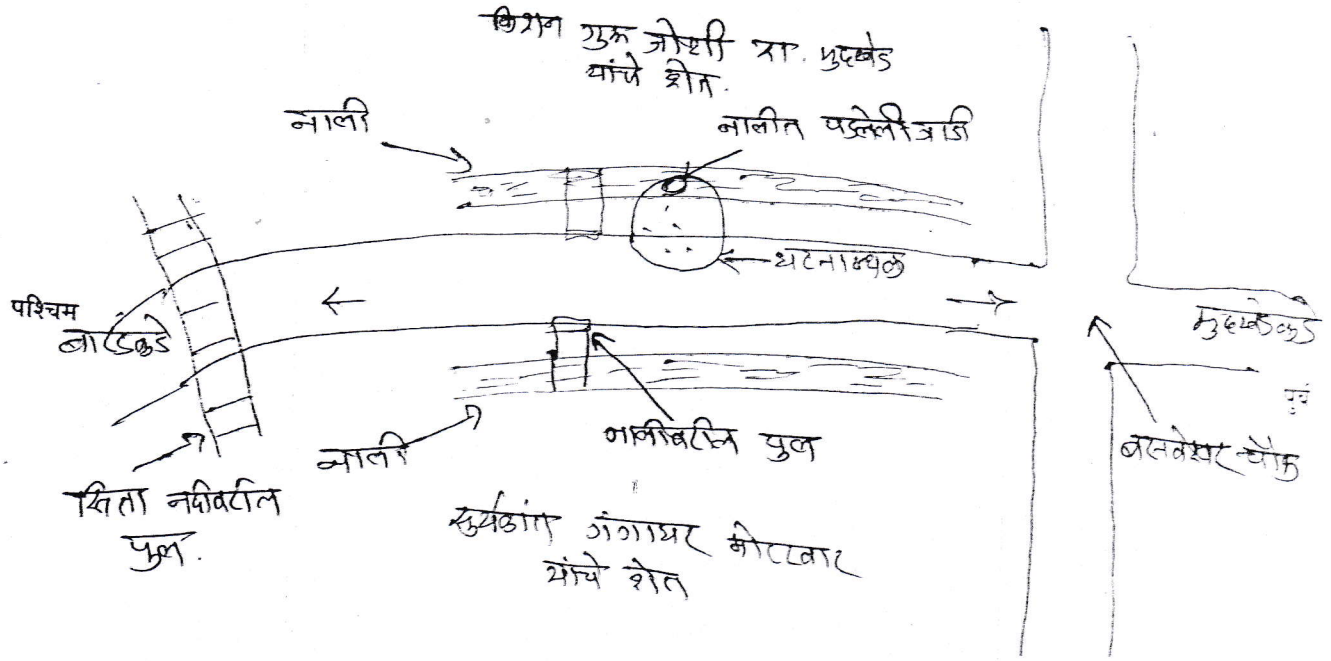 किशन गुरू जोशी रा. मुदखेड
यांचे शेत.
नाली
नालीत पडलेली
घटनास्थळ
पश्चिम
बारडकडे
मुदखेडकडे
पुर्व
नाली
नालीवरील पुल
बसवेश्वर चौक
सिता नदीवरील
पुल.
सुर्यकांत गंगाधर
यांचे शेत